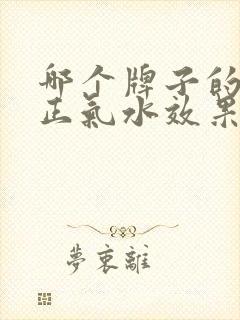 哪个牌子的
正氣水效果
夢裏離